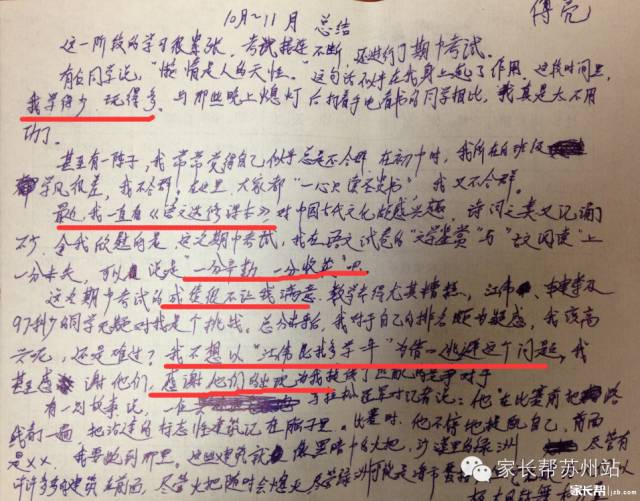 10月~11月 总结
傅亮
这一阶段的学习很紧张,考试接连不断,还进行了期中考试。
有位同学说,"惰情是人的天性。"这句话似乎在我身上起了作用。这段时间里,
我学得少,玩得多。与那些晚上熄灯后打着手电看书的同学相比,我真是太不用
功了。
甚至有一阵子,我常常觉得自己似乎总是不合群。在初中时,我所在的班级
学风很差,我不合群。在这里,大家都"一心只读圣贤书",我又不合群。
最近,我一直看《语文选修课本》,对中国古代文化颇感兴趣,诗词之类又记诵
不少。令我欣慰的是,这次期中考试,我在语文试卷的"文学鉴赏"与"古文阅读"上
一分未失,可以说是"一分辛勤,一分收获"吧。
这次期中考试的成绩很不让我满意,数学考得尤其糟糕。江伟
97的同学无疑对我是个挑战。总分,我对于自己的排名颇为疑惑,我该高
兴呢,还是难过?我不想以"江伟比我多学一年"为借口逃避这个问题。我
甚至感谢他们,感谢他们的出现为我提供了对手
有一则故事说,一在对记者说:他"在比赛前把路
线看一遍,把沿途的标志性建筑记在脑子里。比赛时,他不停地提醒自己,前面
是××,我要跑到那里。这些建筑就像黑暗中的火把,沙漠里的绿洲。尽管有
许许多多的建筑在前面,尽管火把随时会熄灭,尽管绿洲可能是海市蜃楼
家长帮苏州站
家长帮 jzb.com